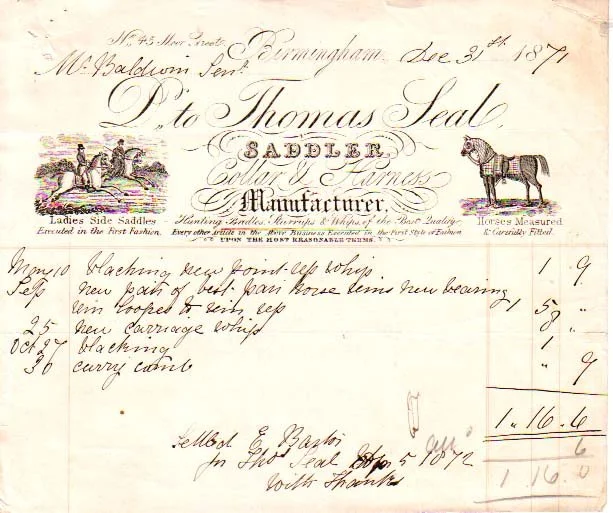 No. 45 Moor Street, Birmingham, Dec 31st 1871
Mr. Baldwin Senr.
Dr. to Thomas Seal,
SADDLER,
Collar & Harness
Manufacturer,
Ladies Side Saddles
Executed in the First Fashion.
Hunting Bridles, Stirrups & Whips, of the Best Quality
Every other article in the Above Business Executed in the First Style of Fashion
UPON THE MOST REASONABLE TERMS.
Horses Measured
& Carefully Fitted.
10 blacking new point rep whip 1 9
Sep new pair of best pair horse reins new bearing
rein loops to rein rep 1 5 "
25 new carriage whip 8 "
Oct 27 blacking 1
30 curry comb " 9
1 " 16 . 6
6
1 16 . 0
Settled E
for Thos Seal 5 1872
With Thanks